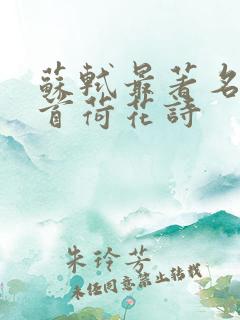 蘇軾最著名
首荷花詩
朱玲芳
未经同意禁止转载